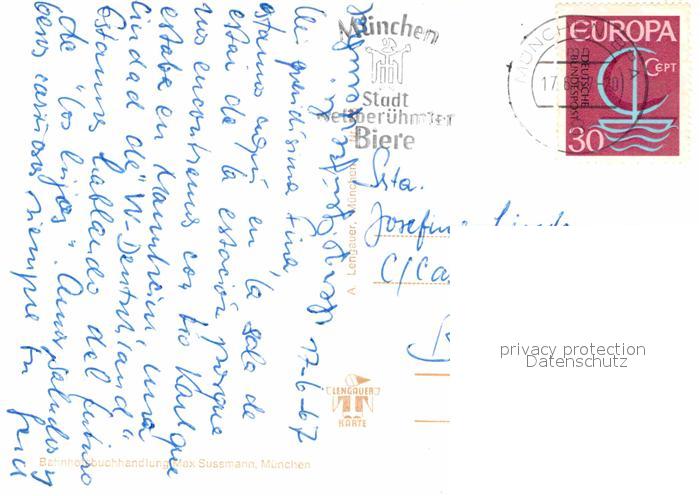 München
Stadt
weltberühmter
Biere
MÜNCHEN
17.6.67-20
EUROPA
CEPT
DEUTSCHE
BUNDESPOST
30
17-6-67
Mi queridísima Fina,
estamos aquí en la sala de
estar de la estación porque
nos encontramos con tío Karl que
estaba en Mannheim, una
ciudad de "W-Deutschland"
Estamos hablando del futuro
de "los hijos". Amor, saludos y
besos cariñosos siempre tu
Srta.
Josefina
C/Ca
A. Lengauer, München
LENGAUER
KARTE
Bahnhofbuchhandlung Max Sussmann, München
privacy protection
Datenschutz